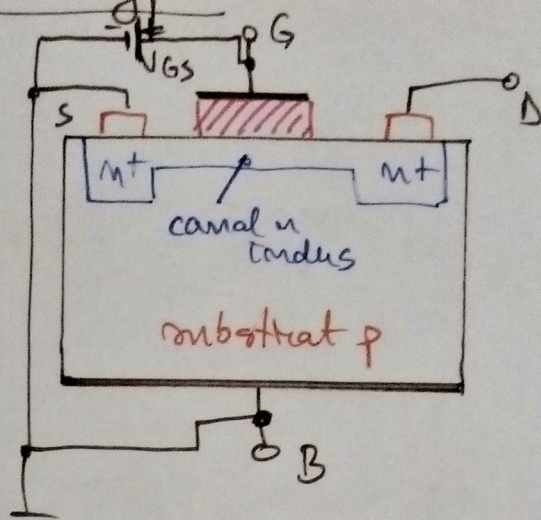 VGS
G
S
D
n+
n+
canal n
indus
substrat p
B